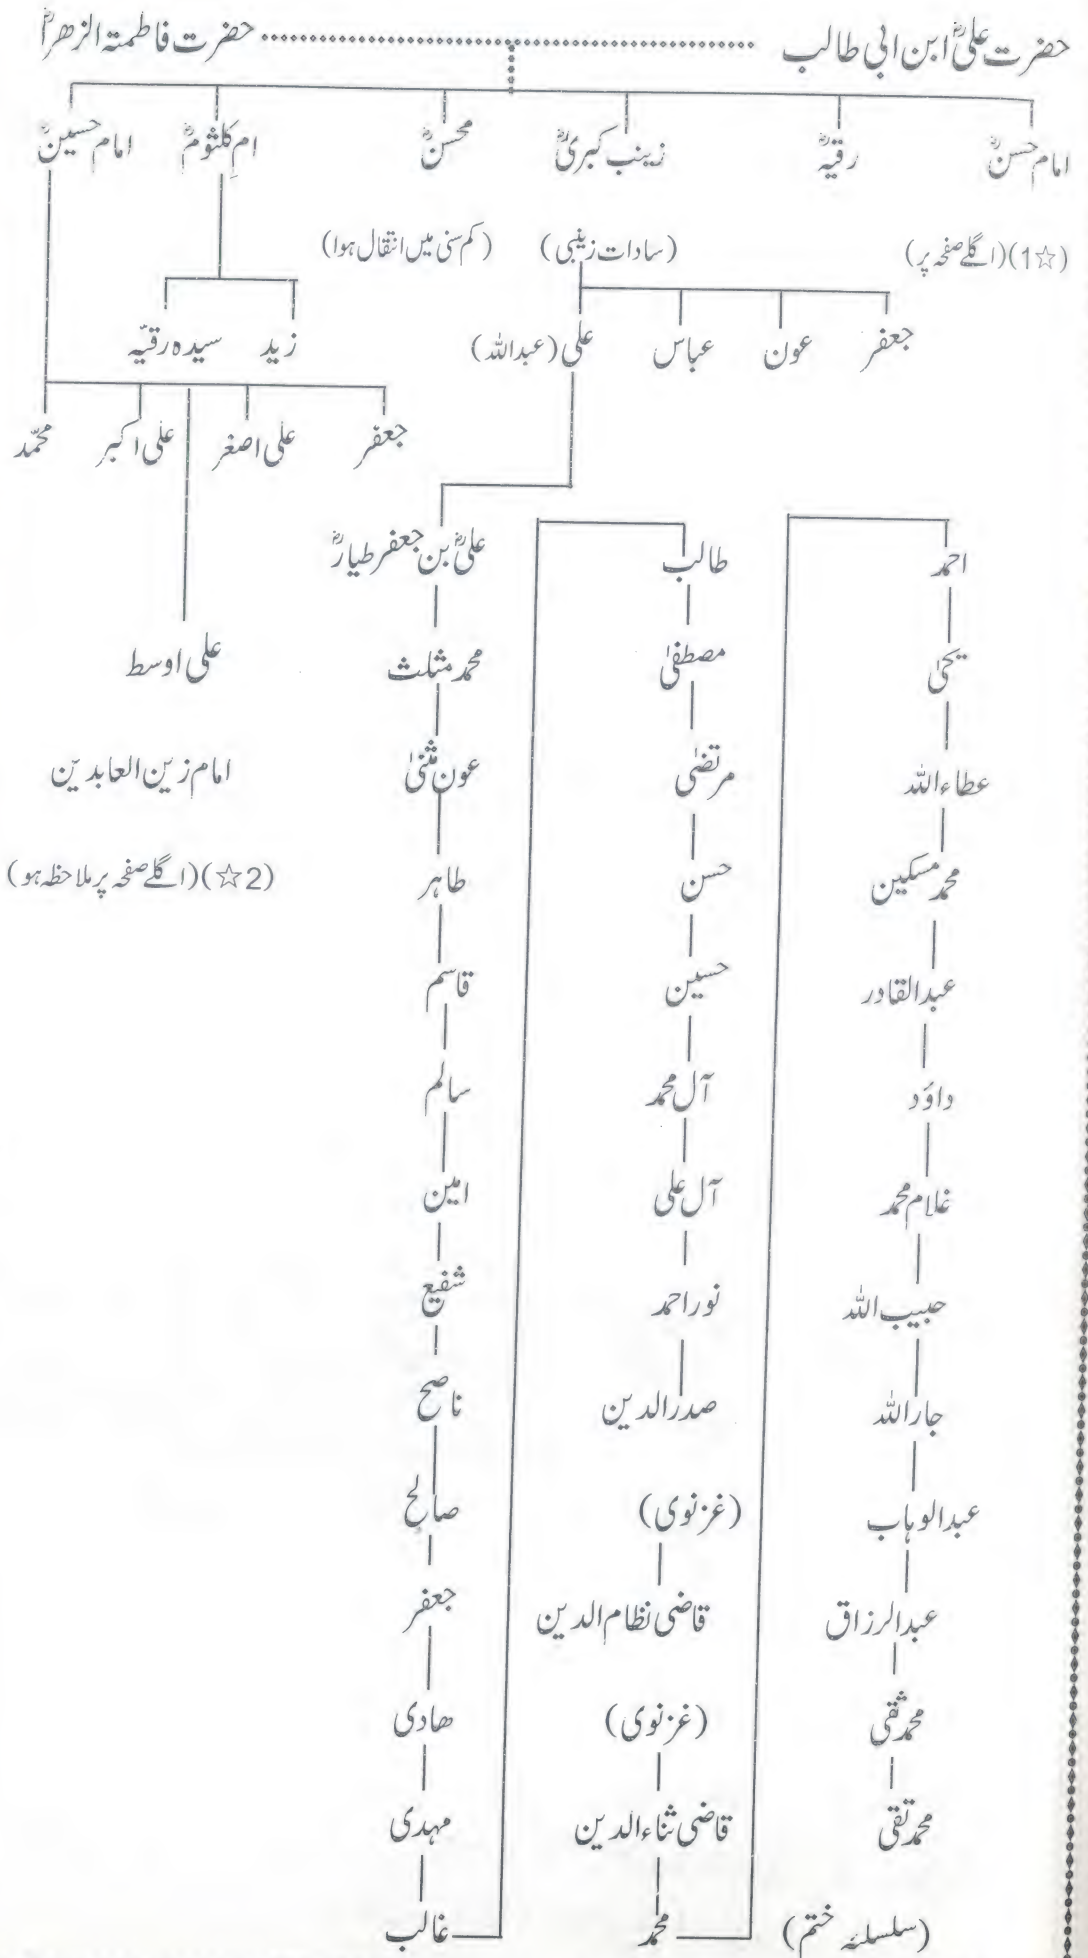 حضرت علیؓ ابن ابی طالب ........ حضرت فاطمتہ الزھراؓ
امام حسنؓ رقیہؓ زینب کبریٰؓ محسنؓ ام کلثومؓ امام حسینؓ
(1☆) (اگلے صفحہ پر) (سادات زینبی) (کم سنی میں انتقال ہوا)
جعفر عون عباس علی (عبداللہ) زید سیدہ رقیّہ
جعفر علی اصغر علی اکبر محمّد
علی اوسط
امام زین العابدین
(2☆) (اگلے صفحہ پر ملاحظہ ہو)
علیؓ بن جعفر طیارؓ
محمد مثلث
عون مثنیٰ
طاہر
قاسم
سالم
امین
شفیع
ناصح
صالح
جعفر
ھادی
مہدی
غالب
طالب
مصطفیٰ
مرتضٰی
حسن
حسین
آل محمد
آل علی
نور احمد
صدر الدین
(غزنوی)
قاضی نظام الدین
(غزنوی)
قاضی ثناء الدین
محمد
احمد
یحیٰ
عطاء اللہ
محمد مسکین
عبدالقادر
داؤد
غلام محمد
حبیب اللہ
جار اللہ
عبدالوہاب
عبدالرزاق
محمد ثقی
محمد تقی
(سلسلئہ ختم)